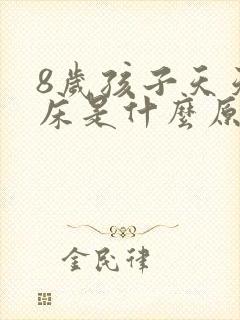 8歲孩子天天
床是什麼原
金民律